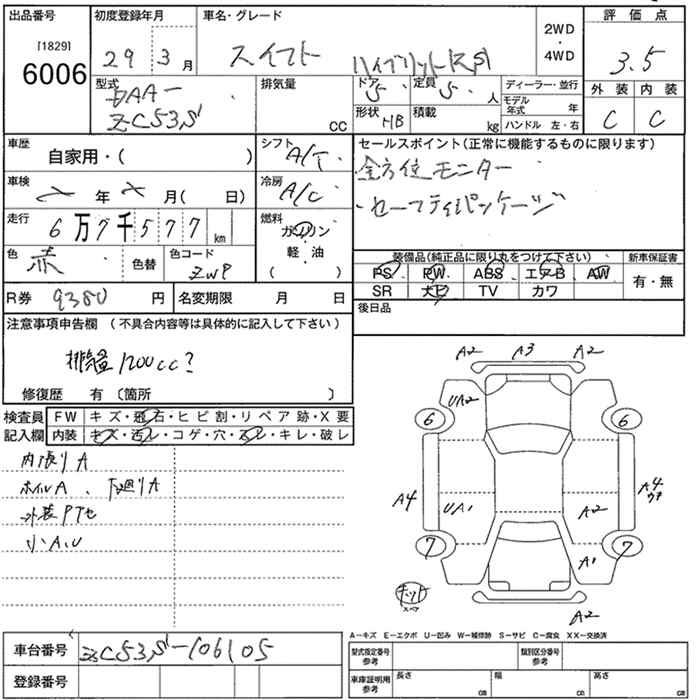 出品番号 初度登録年月 車名・グレード 評価点
[1829]
6006
29 3月 スイフト ハイブリッドRS 2WD・4WD 3.5
型式 排気量 ドア 定員 ディーラー・並行 外装 内装
DAA-
ZC53S CC 5 5 人 モデル年式 年 C C
形状 HB 積載 kg ハンドル 左・右
車歴 自家用・( ) シフト A/T セールスポイント(正常に機能するものに限ります)
全方位モニター
・セーフティパッケージ
車検 年 月( 日) 冷房 A/C
走行 6万7千577km 燃料 ガソリン
軽・油
( )
色 赤 色替 色コード ZWP
装備品(純正品に限り丸をつけて下さい) 新車保証書
PS PW ABS エアB AW 有・無
SR ナビ TV カワ
R券 9380 円 名変期限 月 日 後日品
注意事項申告欄 (不具合内容等は具体的に記入して下さい)
排気量1200cc?
修復歴 有〔箇所 〕
検査員 FW キズ・飛石・ヒビ割・リペア跡・X要
記入欄 内装 キズ・汚レ・コゲ・穴・スレ・キレ・破レ
内張りA
ホイルA、下廻りA
外装PTセ
小A.U
A2 A3 A2
UA2
6 6
A4 UA1 A2 A4
7 7
A1
キット
スペア
A2
A-キズ E-エクボ U-凹み W-補修跡 S-サビ C-腐食 XX-交換済
車台番号 ZC53S-106105
登録番号
型式指定番号 参考 類別区分番号 参考
車庫証明用 参考 長さ cm 幅 cm 高さ cm